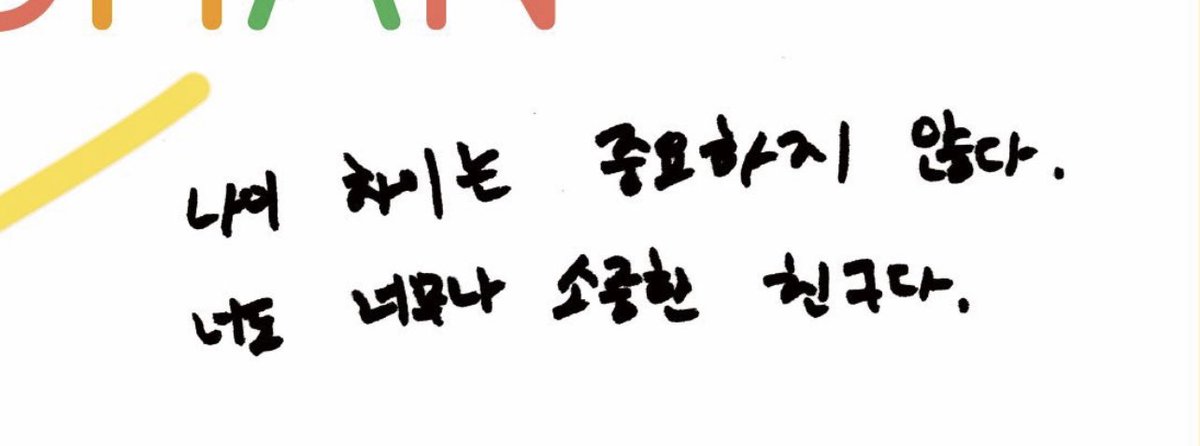 HAN
나이 차이는 중요하지 않다.
너도 너무나 소중한 친구다.